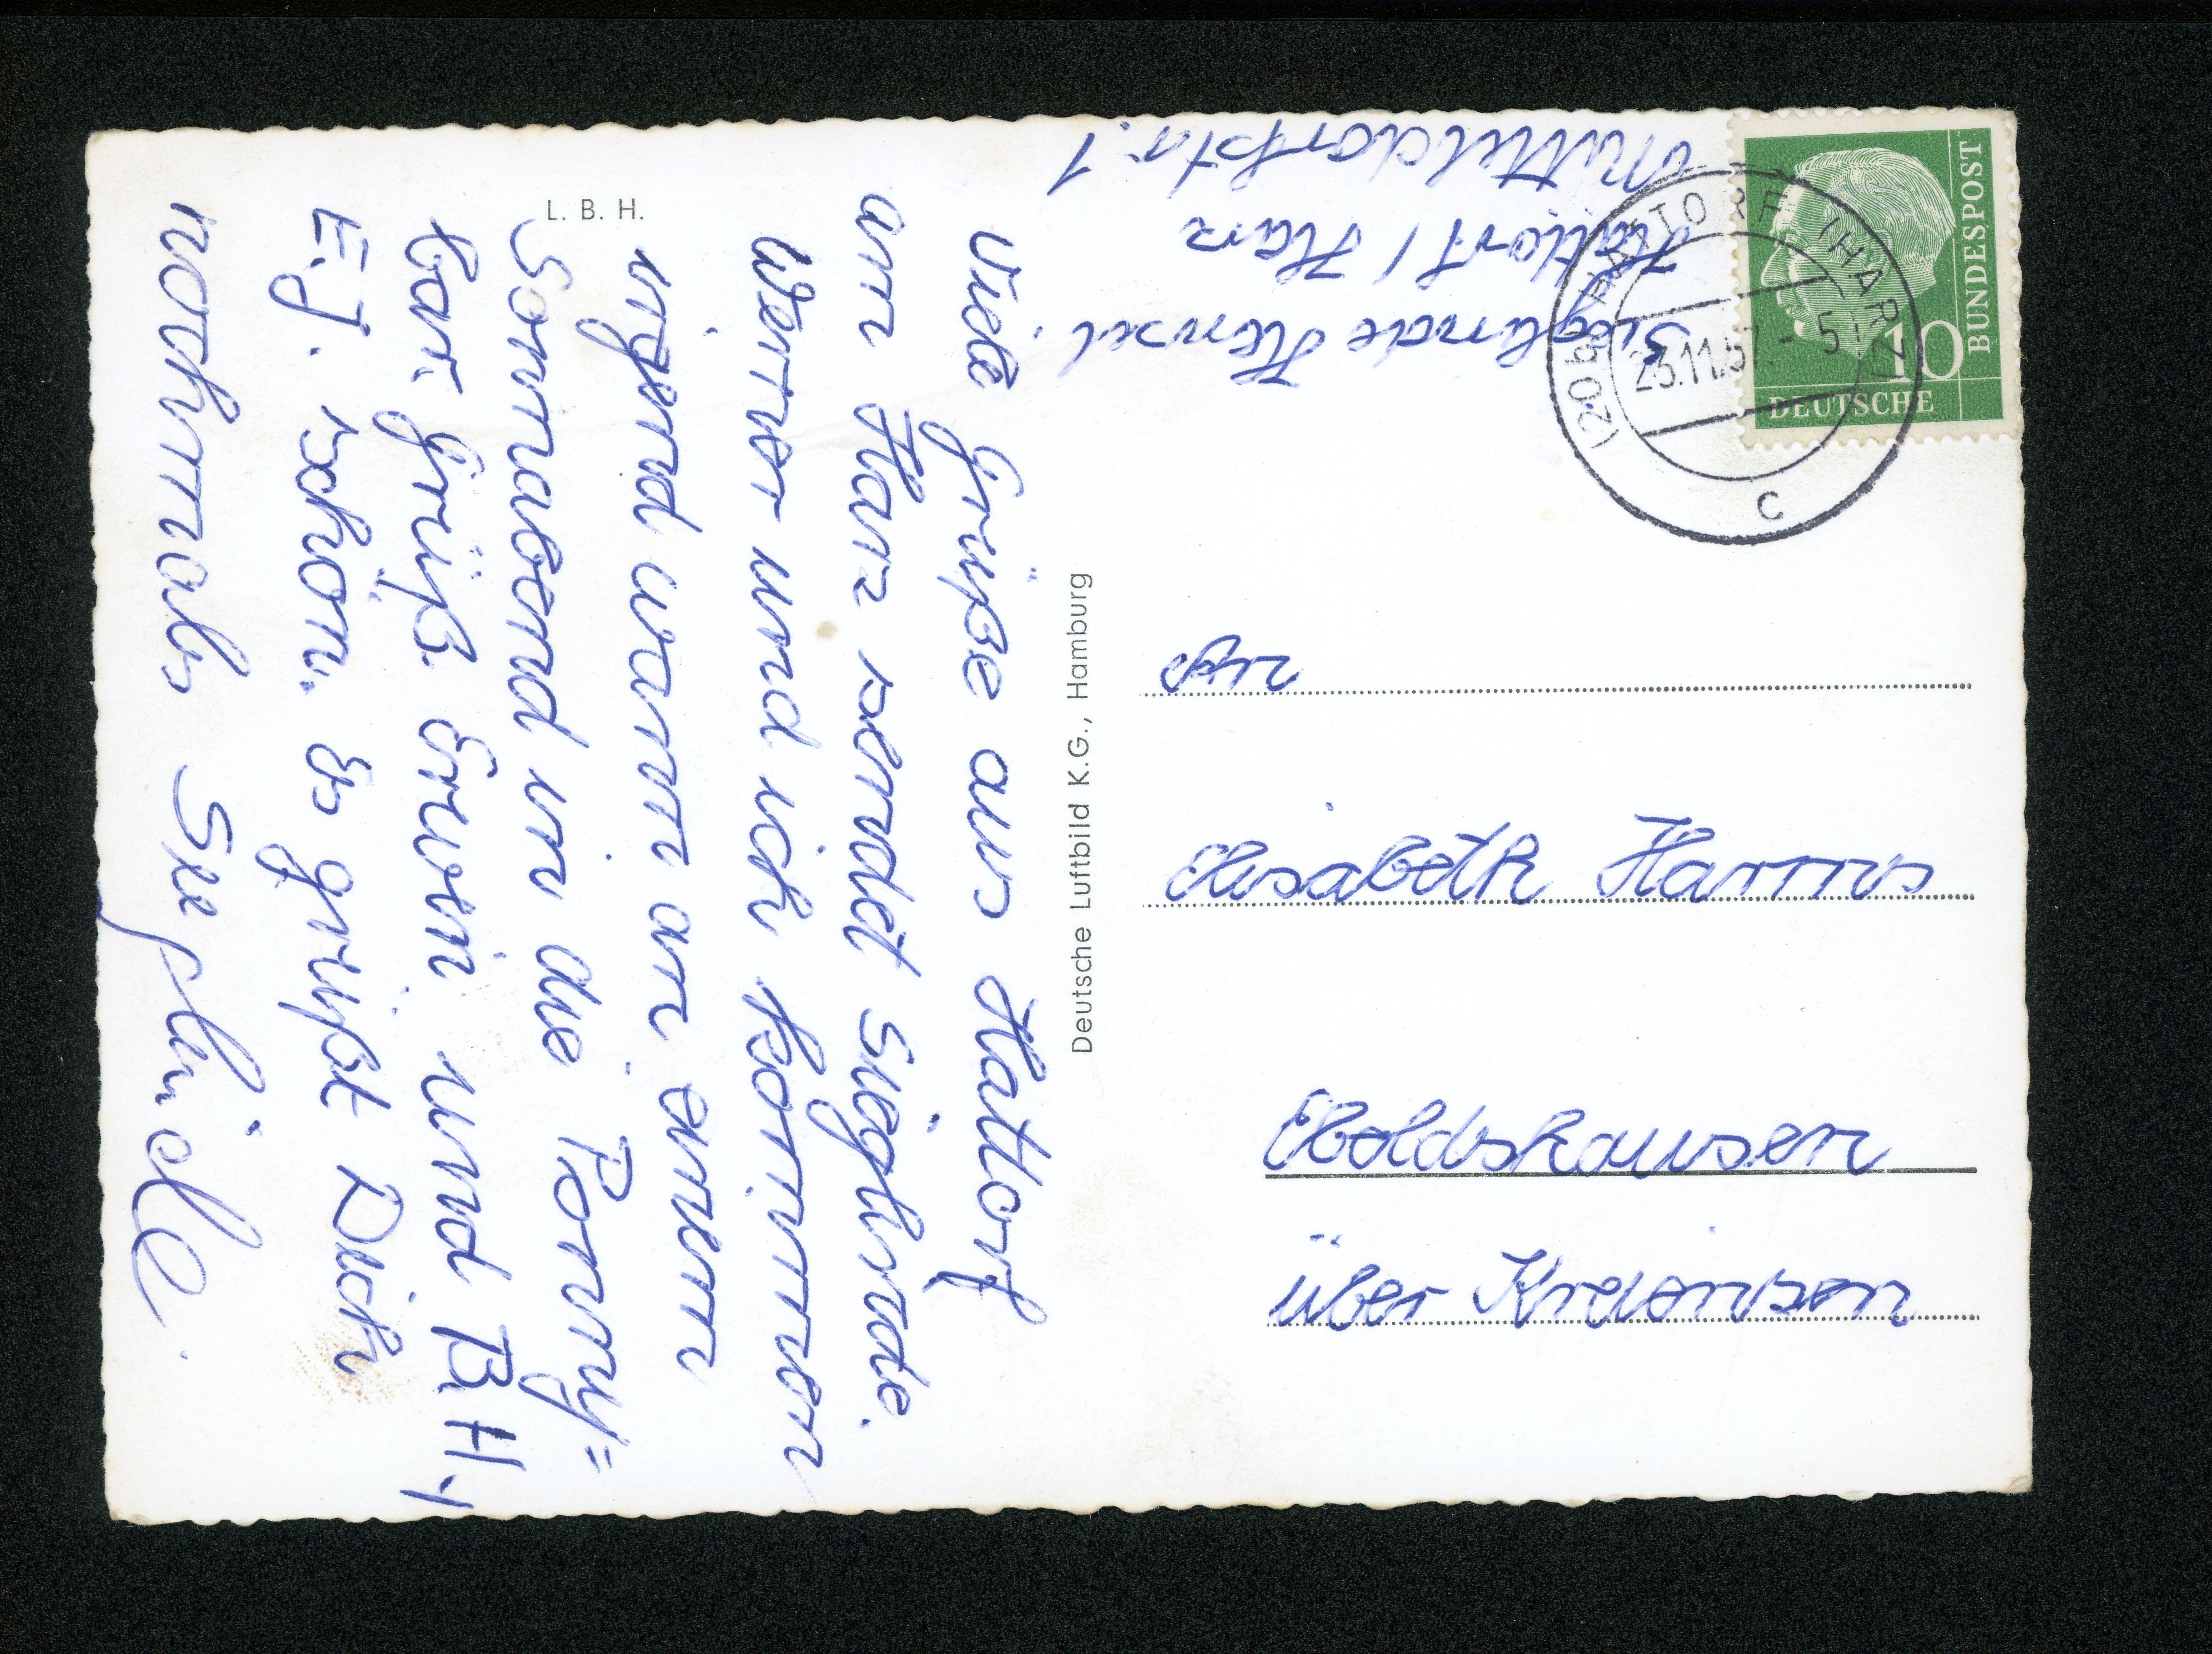 L. B. H.
Viele Grüße aus Hattorf
am Harz sendet Sieglinde.
Werner und ich kommen
irgend wann an einem
Sonnabend in die Ponny=
bar. Grüß Erwin und B.H.,
E.J. schön. Es grüßt Dich
nochmals Sieglinde.
Deutsche Luftbild K.G., Hamburg
Sieglinde Hensel
Hattorf / Harz
Mitteldorfstr. 1
DEUTSCHE
BUNDESPOST
10
(20b) HATTORF (HARZ)
23.11.57.- 5
c
An
Elisabeth Harms
Eboldshausen
über Kreiensen